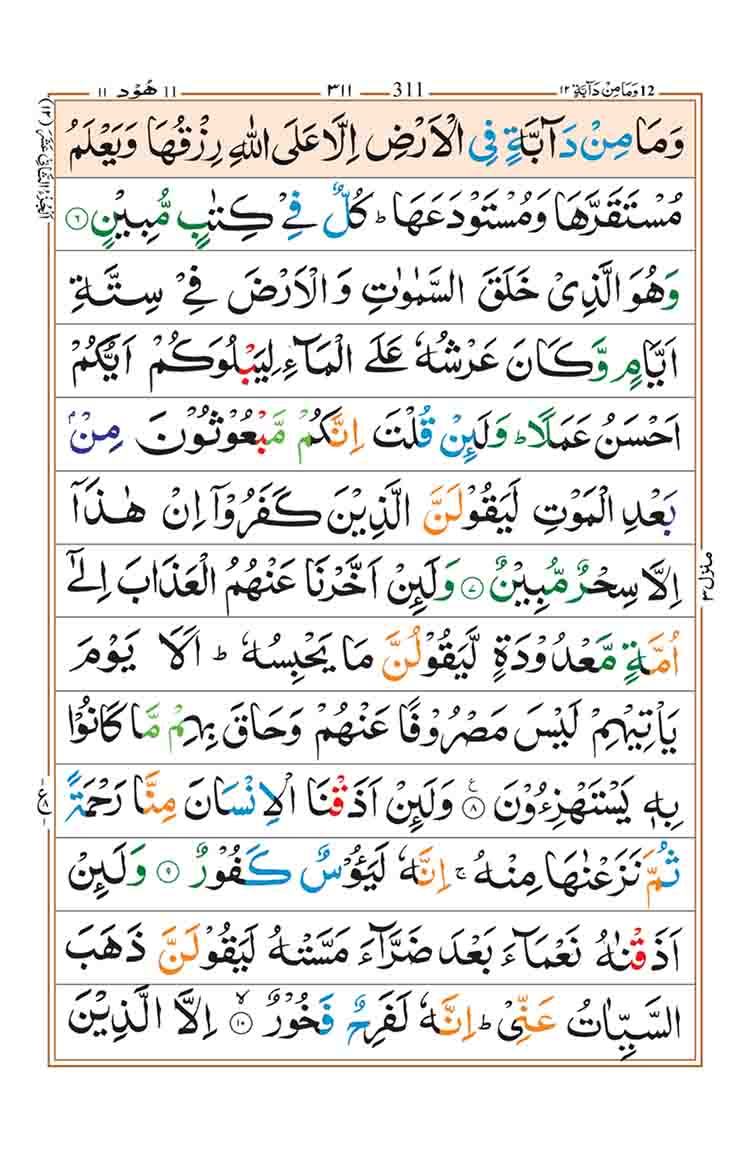 12 وَمَا مِنْ دَآبَّةٍ ١٢ — 311 — ٣١١ — 11 هُوْد ١١
وَمَا مِنْ دَآبَّةٍ فِى الْاَرْضِ اِلَّا عَلَى اللّٰهِ رِزْقُهَا وَيَعْلَمُ
مُسْتَقَرَّهَا وَمُسْتَوْدَعَهَا ؕ كُلٌّ فِىْ كِتٰبٍ مُّبِيْنٍ ۶
وَهُوَ الَّذِىْ خَلَقَ السَّمٰوٰتِ وَالْاَرْضَ فِىْ سِتَّةِ
اَيَّامٍ وَّكَانَ عَرْشُهٗ عَلَى الْمَآءِ لِيَبْلُوَكُمْ اَيُّكُمْ
اَحْسَنُ عَمَلًا ؕ وَلَئِنْ قُلْتَ اِنَّكُمْ مَّبْعُوْثُوْنَ مِنْۢ
بَعْدِ الْمَوْتِ لَيَقُوْلَنَّ الَّذِيْنَ كَفَرُوْۤا اِنْ هٰذَاۤ
اِلَّا سِحْرٌ مُّبِيْنٌ ۷ وَلَئِنْ اَخَّرْنَا عَنْهُمُ الْعَذَابَ اِلٰٓى
اُمَّةٍ مَّعْدُوْدَةٍ لَّيَقُوْلُنَّ مَا يَحْبِسُهٗ ؕ اَلَا يَوْمَ
يَاْتِيْهِمْ لَيْسَ مَصْرُوْفًا عَنْهُمْ وَحَاقَ بِهِمْ مَّا كَانُوْا
بِهٖ يَسْتَهْزِءُوْنَ ۸ ع وَلَئِنْ اَذَقْنَا الْاِنْسَانَ مِنَّا رَحْمَةً
ثُمَّ نَزَعْنٰهَا مِنْهُ ۚ اِنَّهٗ لَيَـُٔوْسٌ كَفُوْرٌ ۹ وَلَئِنْ
اَذَقْنٰهُ نَعْمَآءَ بَعْدَ ضَرَّآءَ مَسَّتْهُ لَيَقُوْلَنَّ ذَهَبَ
السَّيِّاٰتُ عَنِّىْ ؕ اِنَّهٗ لَفَرِحٌ فَخُوْرٌ ۱۰ ۙ اِلَّا الَّذِيْنَ
اَلْجُزْءُ الثَّانِیْ عَشَرَ (١٢)
منزل ٣
ع ٨